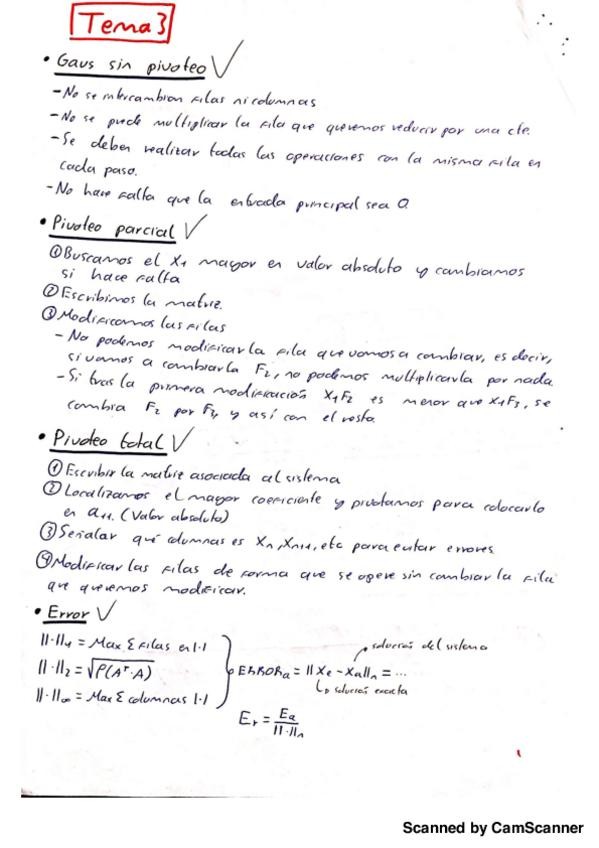 Tema 3
• Gaus sin pivoteo √
- No se intercambian filas ni columnas
- No se puede multiplicar la fila que queremos reducir por una cte.
- Se deben realizar todas las operaciones con la misma fila en
cada paso.
- No hace falta que la entrada principal sea 0
• Pivoteo parcial √
① Buscamos el X₁ mayor en valor absoluto y cambiamos
si hace falta
② Escribimos la matriz.
③ Modificamos las filas
- No podemos modificar la fila que vamos a cambiar, es decir,
si vamos a cambiar la F₂, no podemos multiplicarla por nada.
- Si tras la primera modificación X₁F₂ es menor que X₁F₃, se
cambia F₂ por F₃, y así con el resto.
• Pivoteo total √
① Escribir la matriz asociada al sistema
② Localizamos el mayor coeficiente y pivotamos para colocarlo
en a₁₁. (Valor absoluto)
③ Señalar qué columnas es Xₙ, Xₙ₊₁, etc para evitar errores
④ Modificar las filas de forma que se opere sin cambiar la fila
que queremos modificar.
• Error √
||·||₁ = Max Σ filas en |·|
||·||₂ = √ρ(Aᵀ·A)
||·||∞ = Max Σ columnas |·|
solución del sistema
ERRORₐ = ||Xₑ - Xₐ||ₙ = ...
solución exacta
Eᵣ = Eₐ / ||·||ₙ
Scanned by CamScanner